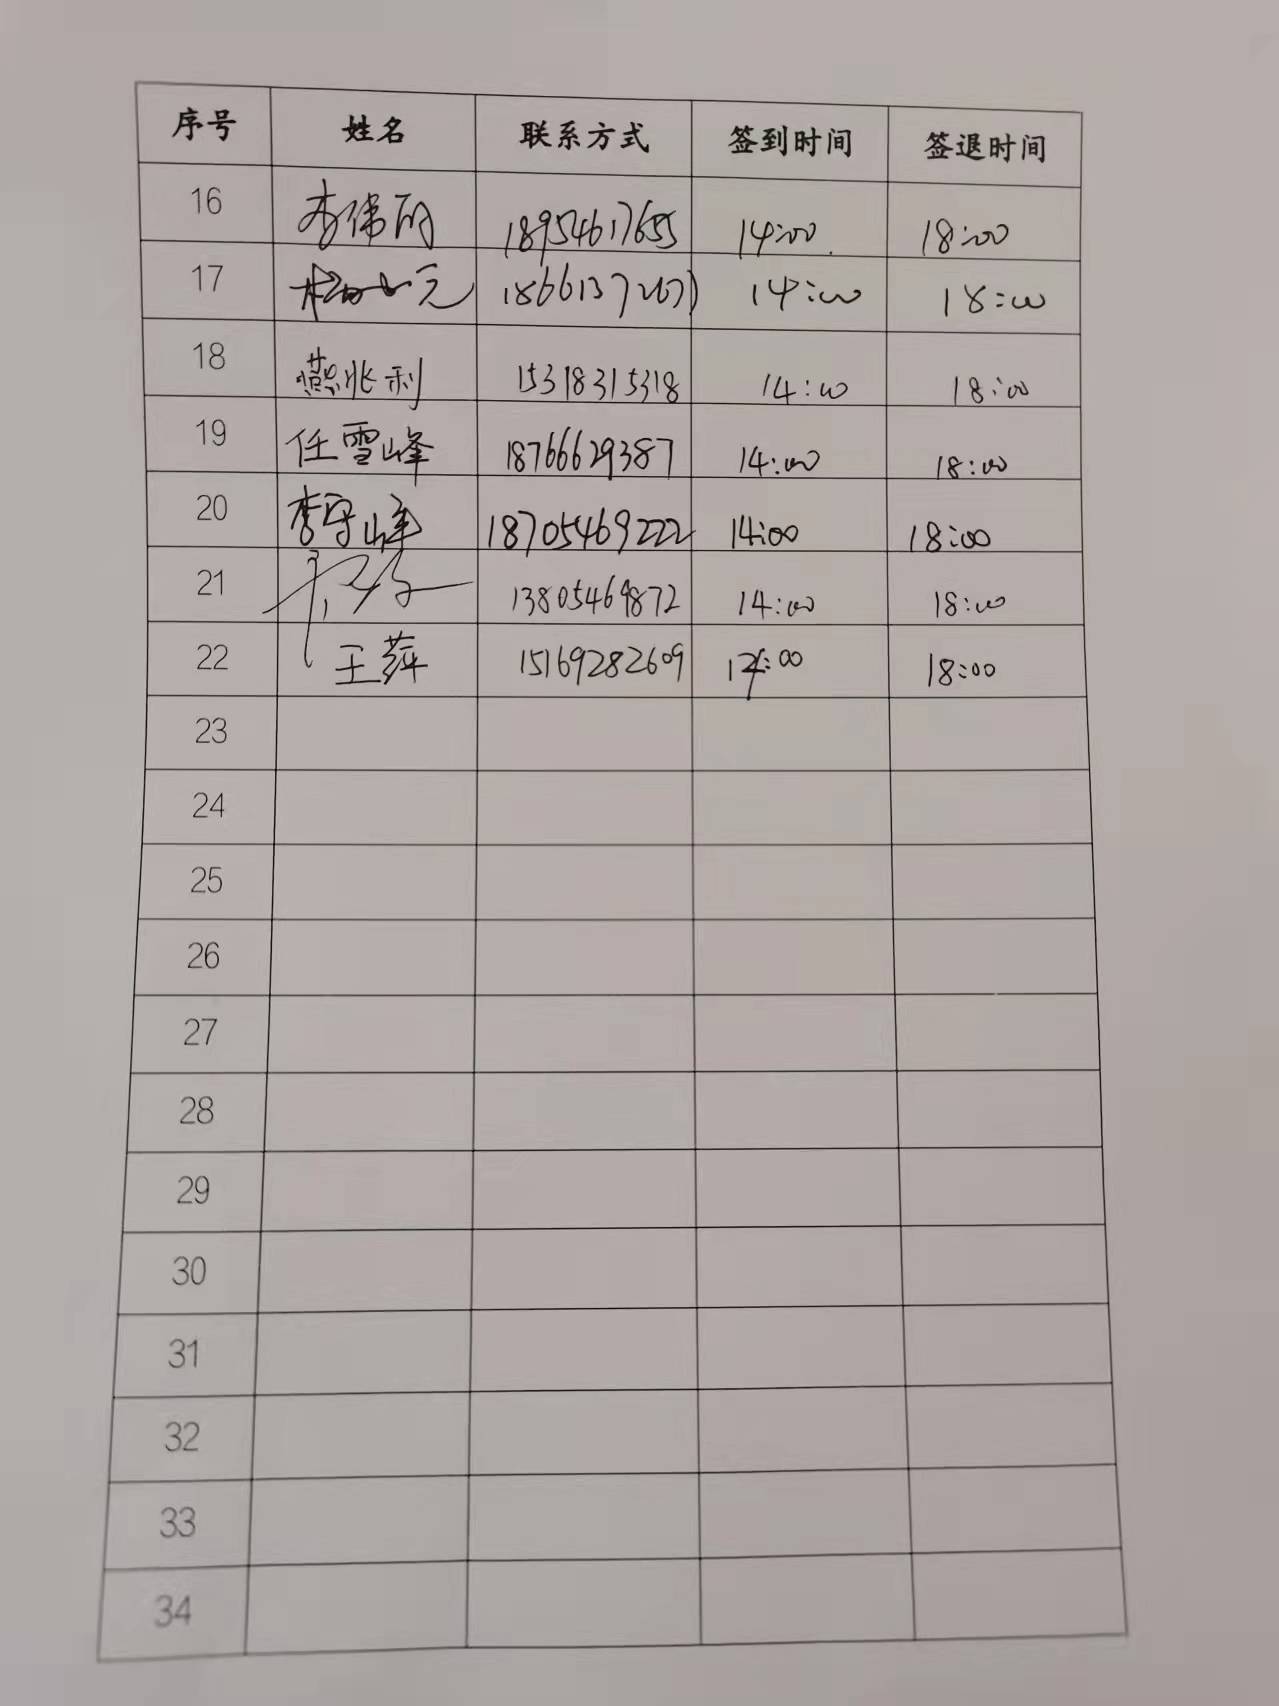 序号 姓名 联系方式 签到时间 签退时间
16 李伟 18954617655 14:00 18:00
17 元 14:00 18:00
18 燕兆利 15318315318 14:00 18:00
19 任雪峰 18766629387 14:00 18:00
20 李守峰 18705469222 14:00 18:00
21 13805469872 14:00 18:00
22 王萍 15169282609 14:00 18:00
23
24
25
26
27
28
29
30
31
32
33
34